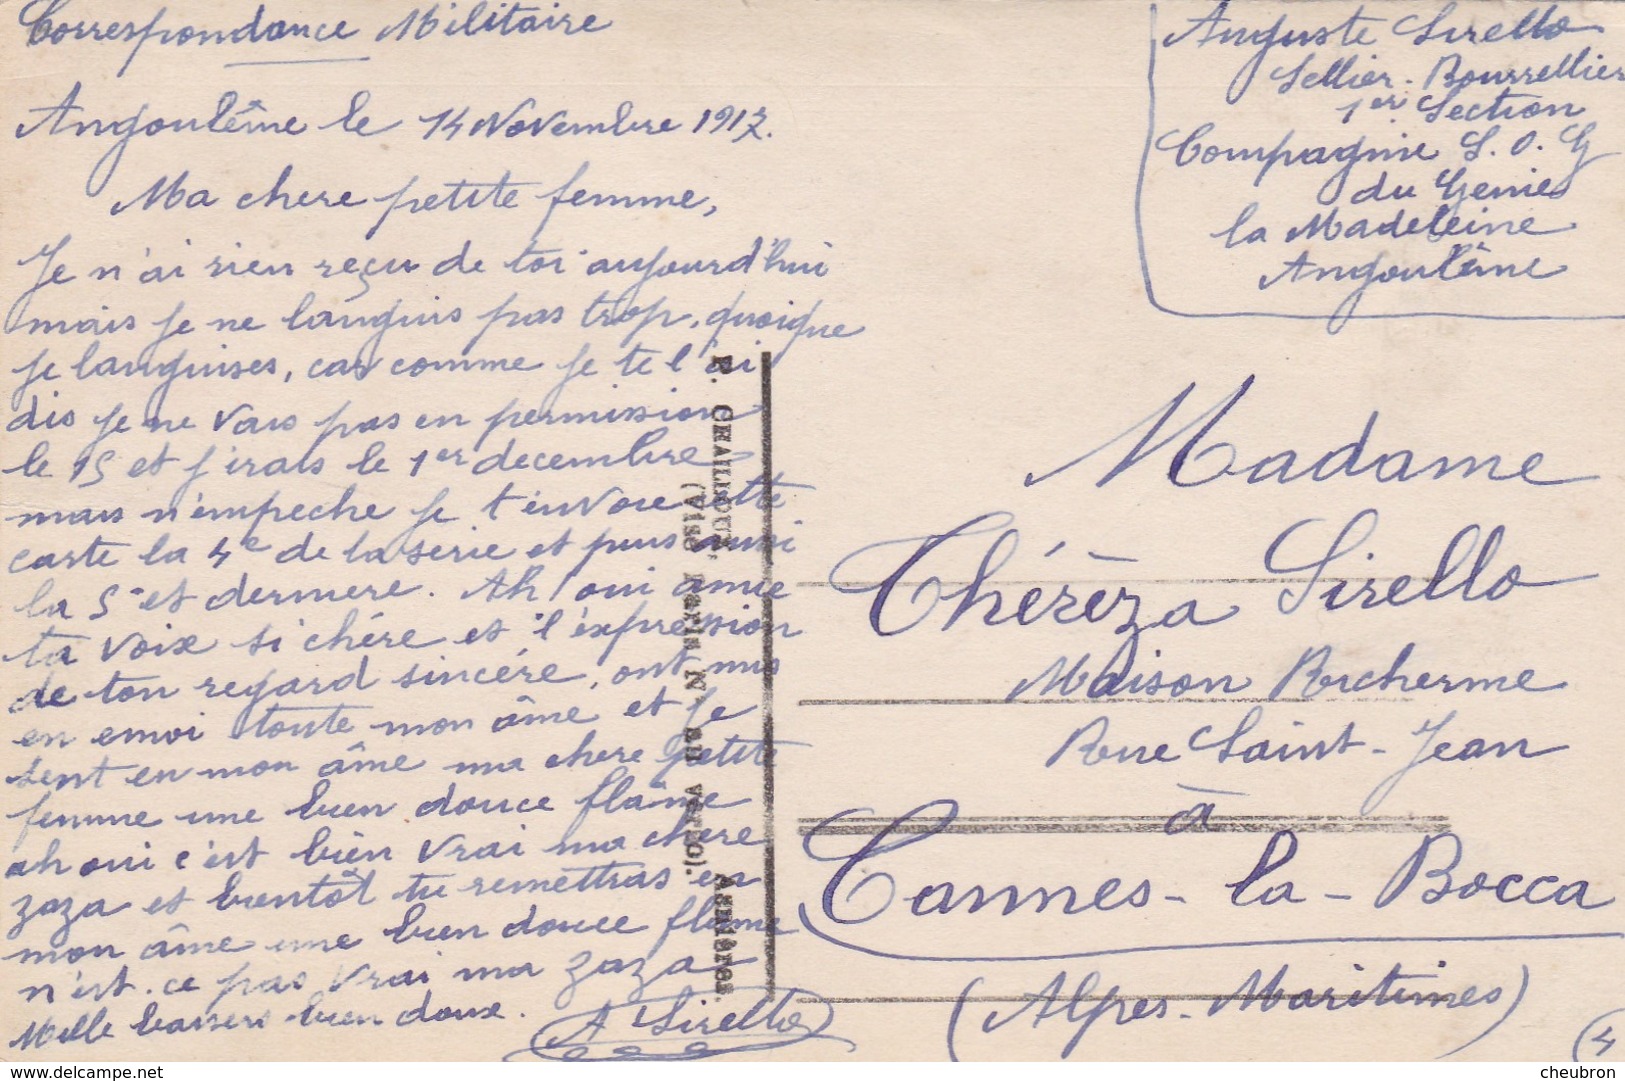 Correspondance Militaire
Angoulême le 14 Novembre 1917.
Ma chere petite femme,
Je n'ai rien reçu de toi aujourd'hui
mais je ne languis pas trop, quoique
je languises, car comme je te l'ai
dis je ne vais pas en permission
le 15 et j'irais le 1er decembre
mais n'empeche je t'envoie cette
carte la 4e de la serie et puis aussi
la 5e et derniere. Ah oui amie
ta voix si chére et l'expression
de ton regard sincére, ont mis
en emoi toute mon âme et je
sent en mon âme ma chere petite
femme une bien douce flâme
ah oui c'est bièn vrai ma chere
zaza et bientôt tu remettras en
mon âme une bien douce flâme
n'est-ce pas vrai ma zaza
Mille baisers bien doux.
A Sirello
P. CHAILLOUX,
(Visé Paris N° au verso).
ASNIÈRES.
Auguste Sirello
Sellier-Bourrellier
1er Section
Compagnie S.O.G
du Genie
la Madeleine
Angoulême
Madame
Thérèza Sirello
Maison Rucherme
Rue Saint-Jean
à
Cannes-la-Bocca
(Alpes-Maritimes)
(4
delcampe.net
cheubron